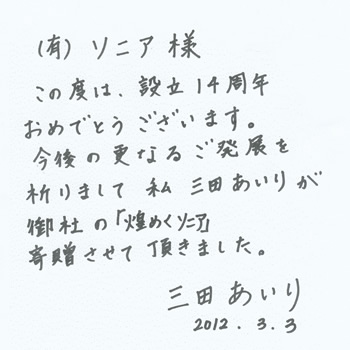 (有) ソニア 様
この度は、設立14周年
おめでとうございます。
今後の更なるご発展を
祈りまして 私 三田あいりが
御社の「煌めくソニア」
寄贈させて頂きました。
三田あいり
2012.3.3